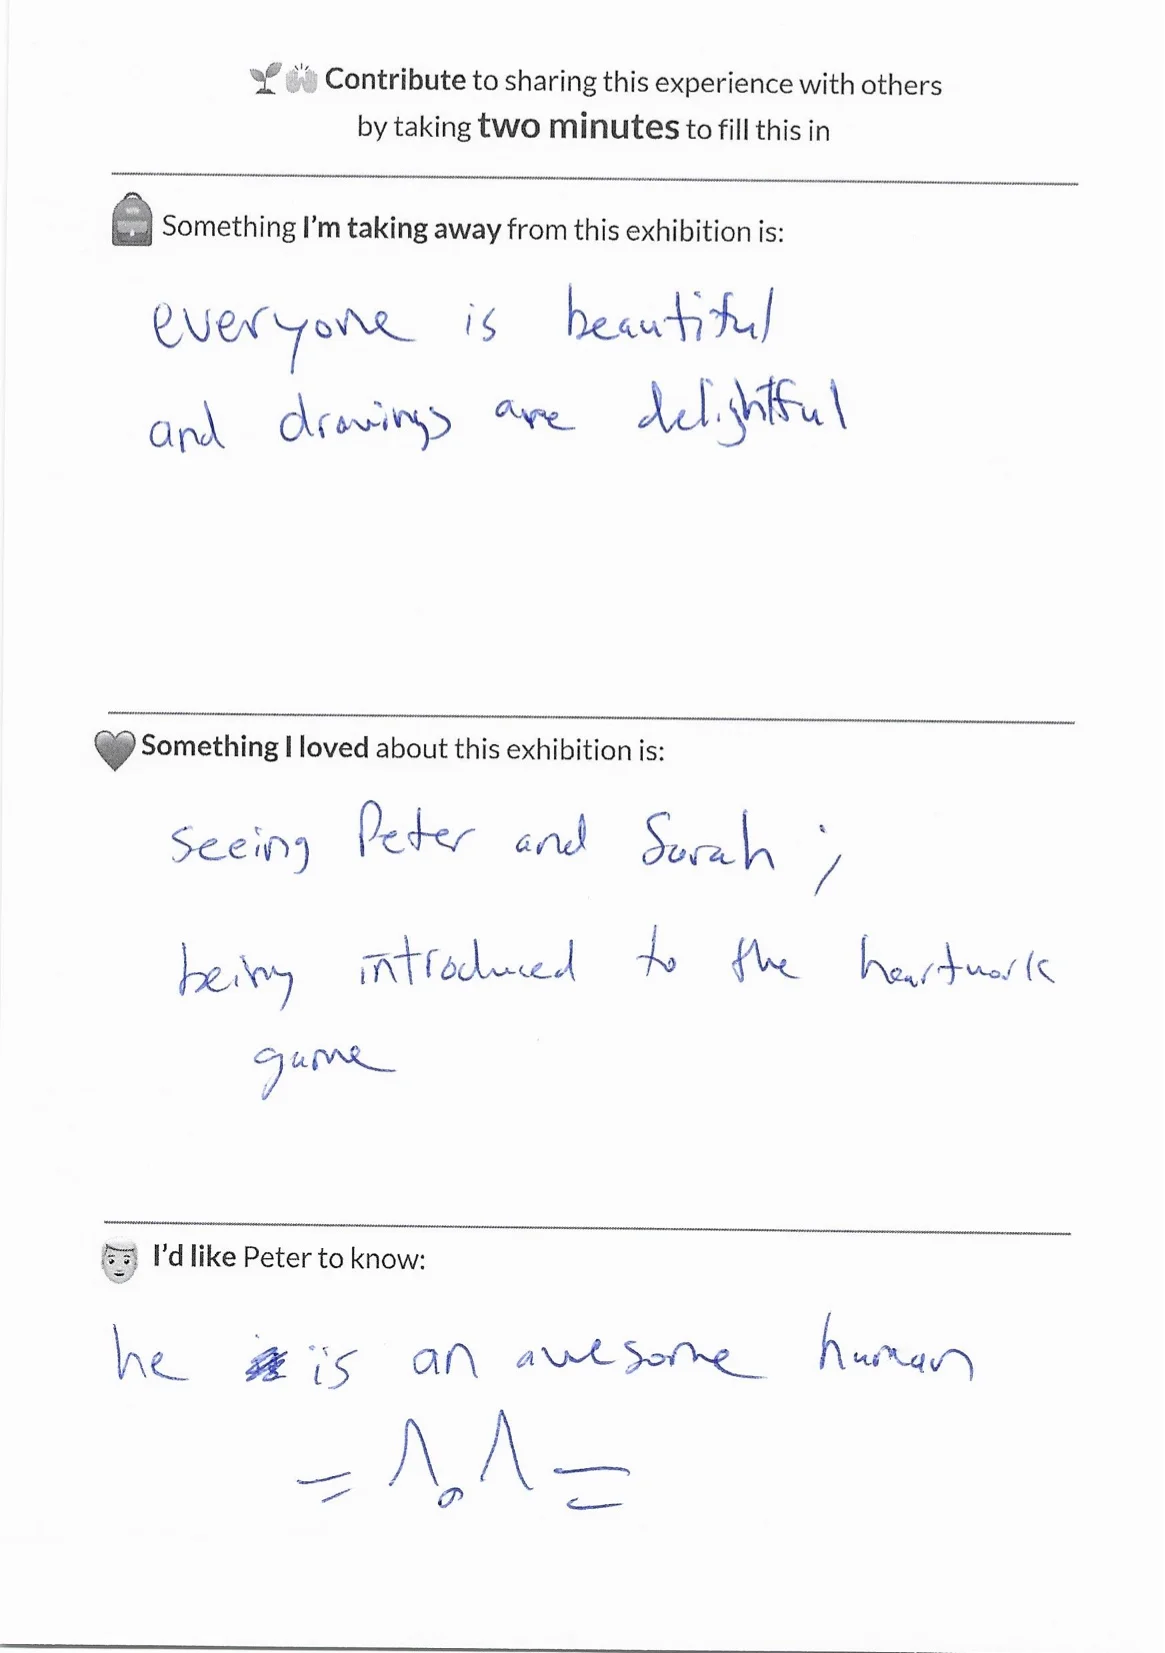 Contribute to sharing this experience with others
by taking two minutes to fill this in
Something I'm taking away from this exhibition is:
everyone is beautiful
and drawings are delightful
Something I loved about this exhibition is:
seeing Peter and Sarah ;
being introduced to the heartwork
game
I'd like Peter to know:
he is an awesome human
= ^o^ =